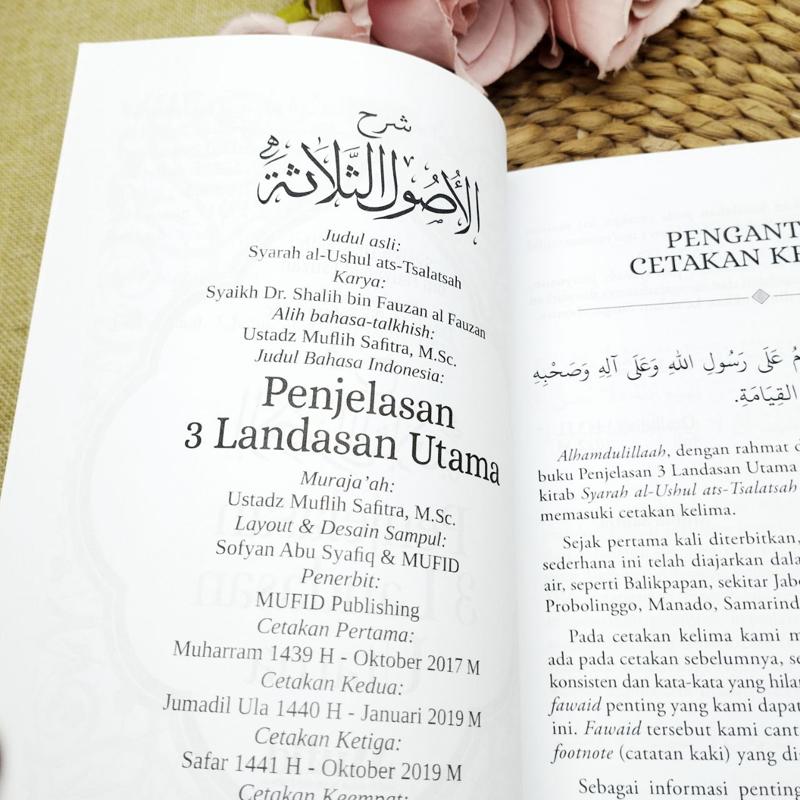 شرح
الأُصُول الثَّلاثَة
Judul asli:
Syarah al-Ushul ats-Tsalatsah
Karya:
Syaikh Dr. Shalih bin Fauzan al Fauzan
Alih bahasa-talkhish:
Ustadz Muflih Safitra, M.Sc.
Judul Bahasa Indonesia:
Penjelasan
3 Landasan Utama
Muraja'ah:
Ustadz Muflih Safitra, M.Sc.
Layout & Desain Sampul:
Sofyan Abu Syafiq & MUFID
Penerbit:
MUFID Publishing
Cetakan Pertama:
Muharram 1439 H - Oktober 2017 M
Cetakan Kedua:
Jumadil Ula 1440 H - Januari 2019 M
Cetakan Ketiga:
Safar 1441 H - Oktober 2019 M
Cetakan Keempat:
PENGANT
CETAKAN KE
عَلَى رَسُولِ اللهِ وَعَلَى آلِهِ وَصَحْبِهِ
القِيَامَةِ.
Alhamdulillaah, dengan rahmat
buku Penjelasan 3 Landasan Utama
kitab Syarah al-Ushul ats-Tsalatsah
memasuki cetakan kelima.
Sejak pertama kali diterbitkan,
sederhana ini telah diajarkan dala
air, seperti Balikpapan, sekitar Jab
Probolinggo, Manado, Samarind
Pada cetakan kelima kami m
ada pada cetakan sebelumnya, se
konsisten dan kata-kata yang hila
fawaid penting yang kami dapat
ini. Fawaid tersebut kami cant
footnote (catatan kaki) yang di
Sebagai informasi penting